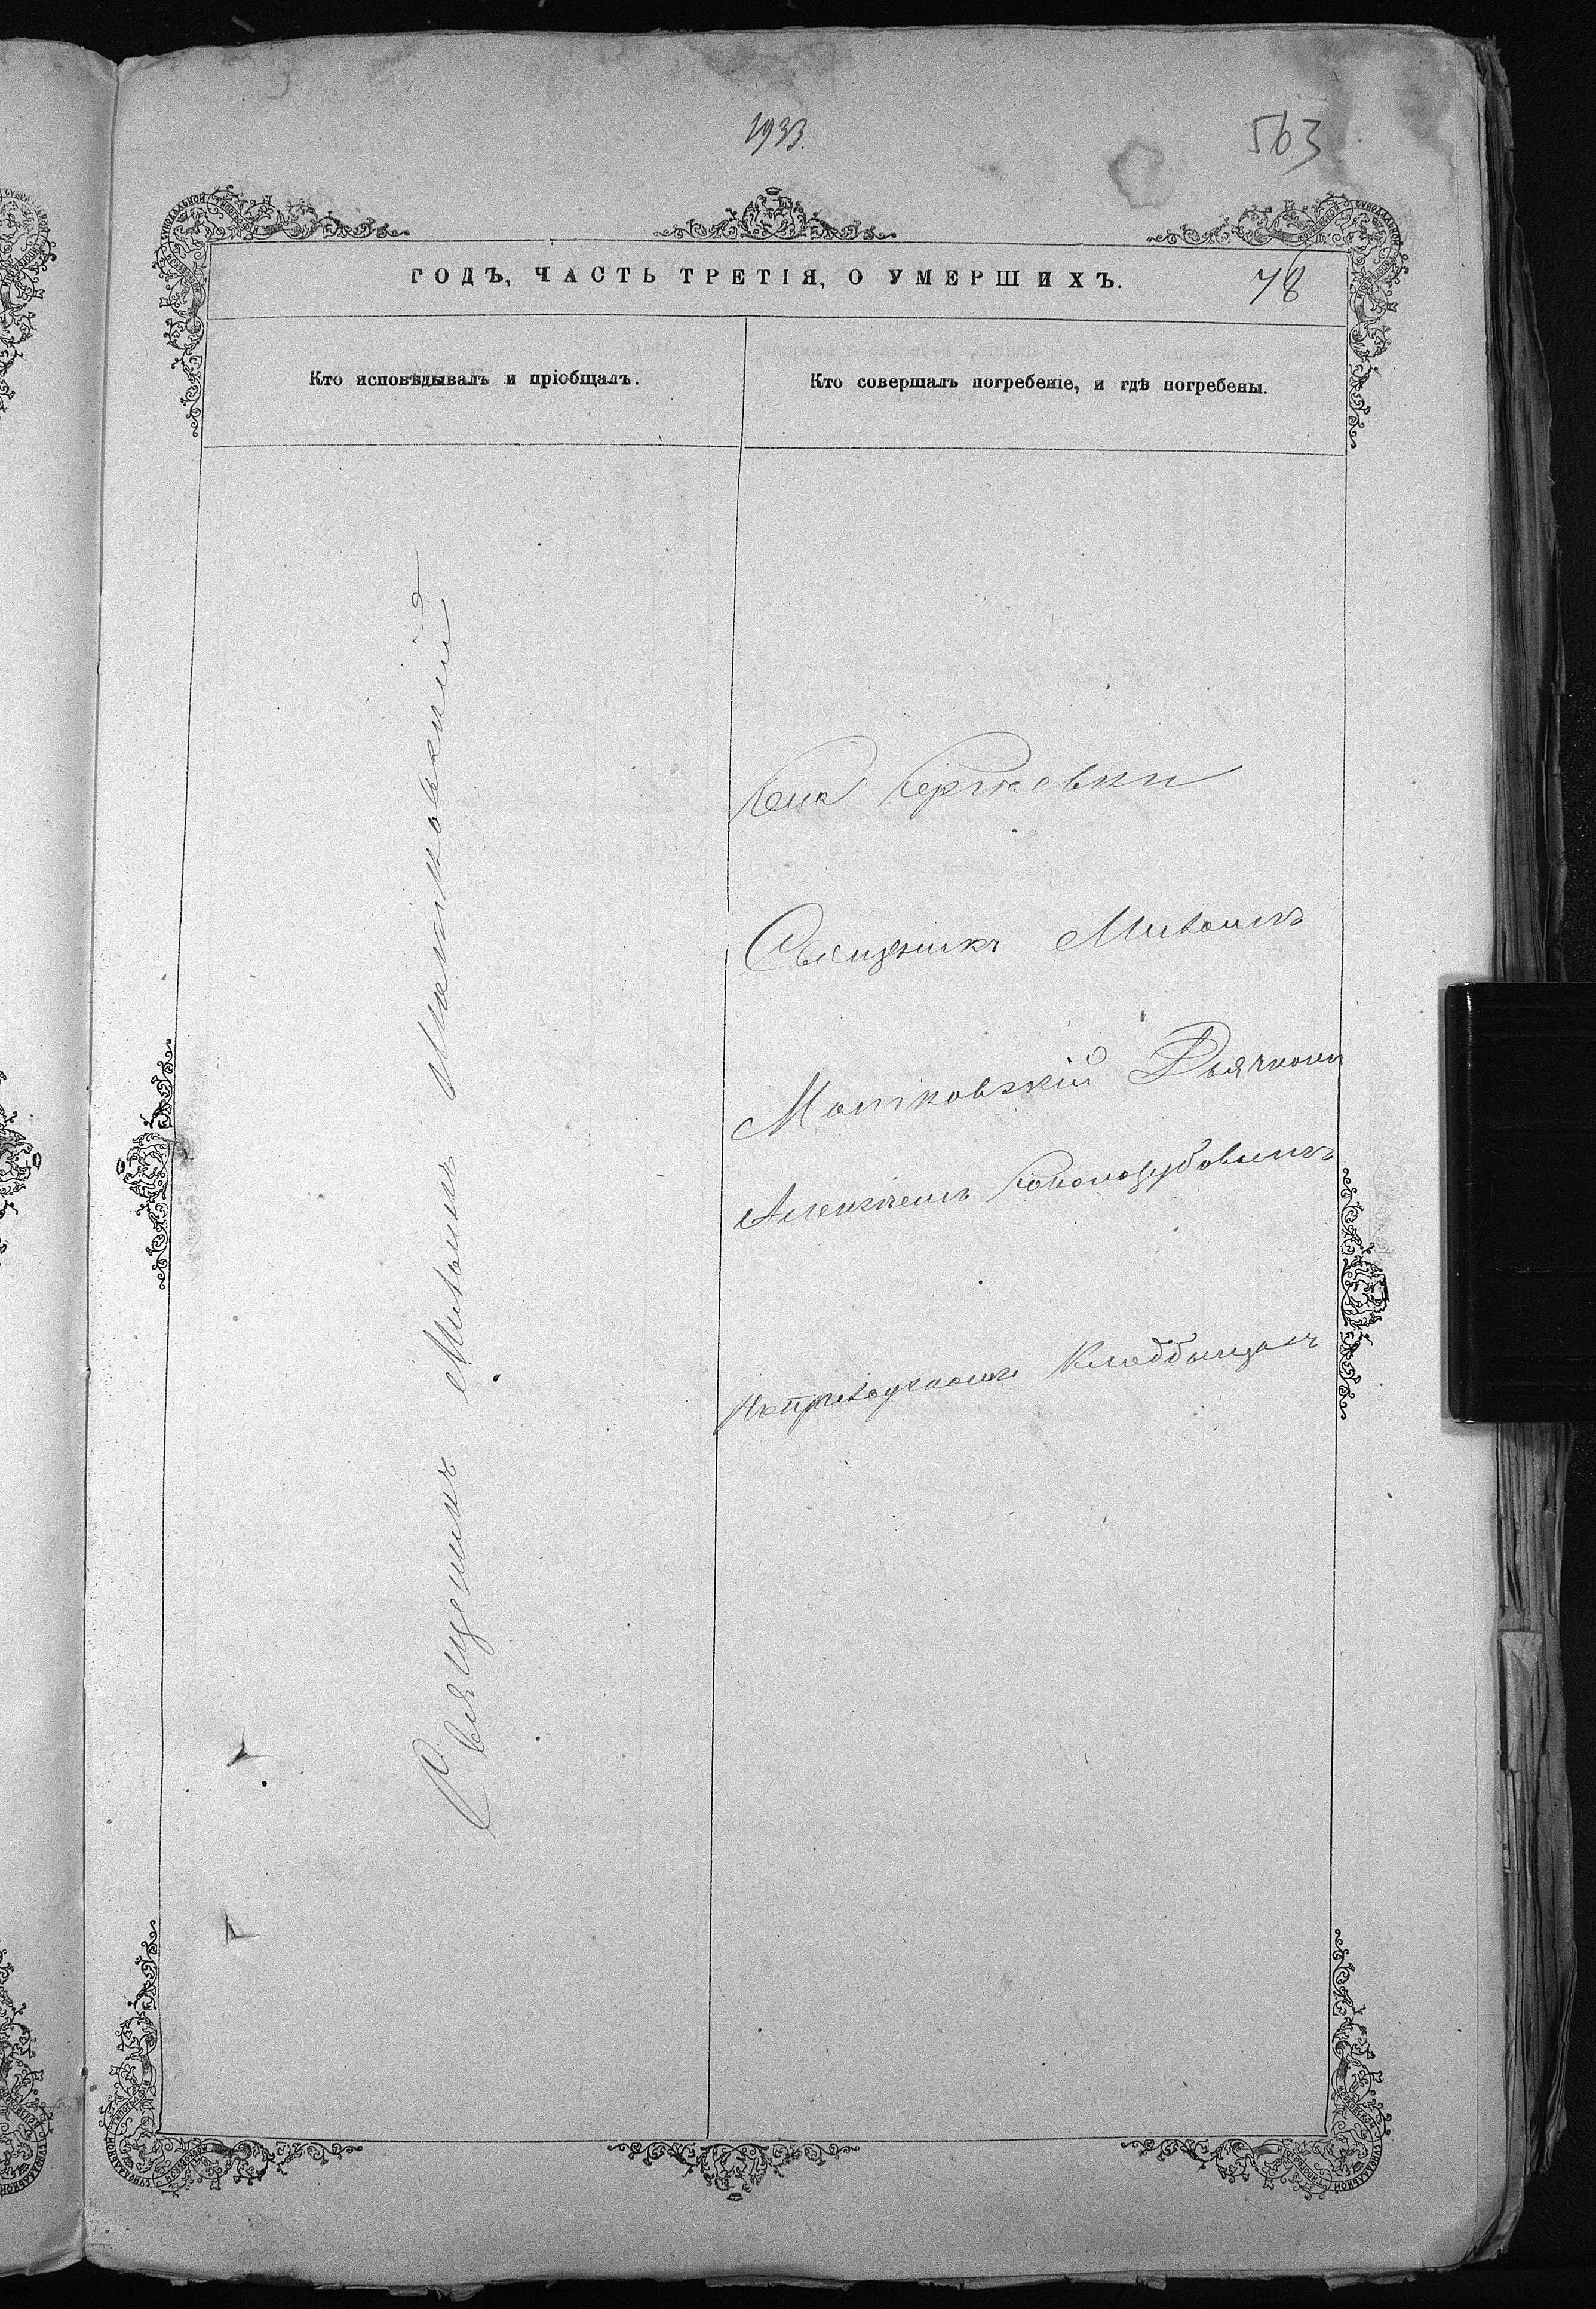 1933.
563
ГОДЪ, ЧАСТЬ ТРЕТІЯ, О УМЕРШИХЪ.
78
Кто исповѣдывалъ и пріобщалъ.
Кто совершалъ погребеніе, и гдѣ погребены.
Священикъ Михаилъ Матковскій
Села Сергѣевки
Священикъ Михаилъ
Матковскій Дьячкомъ
Алексѣемъ
Наприходскомъ Кладбищѣ